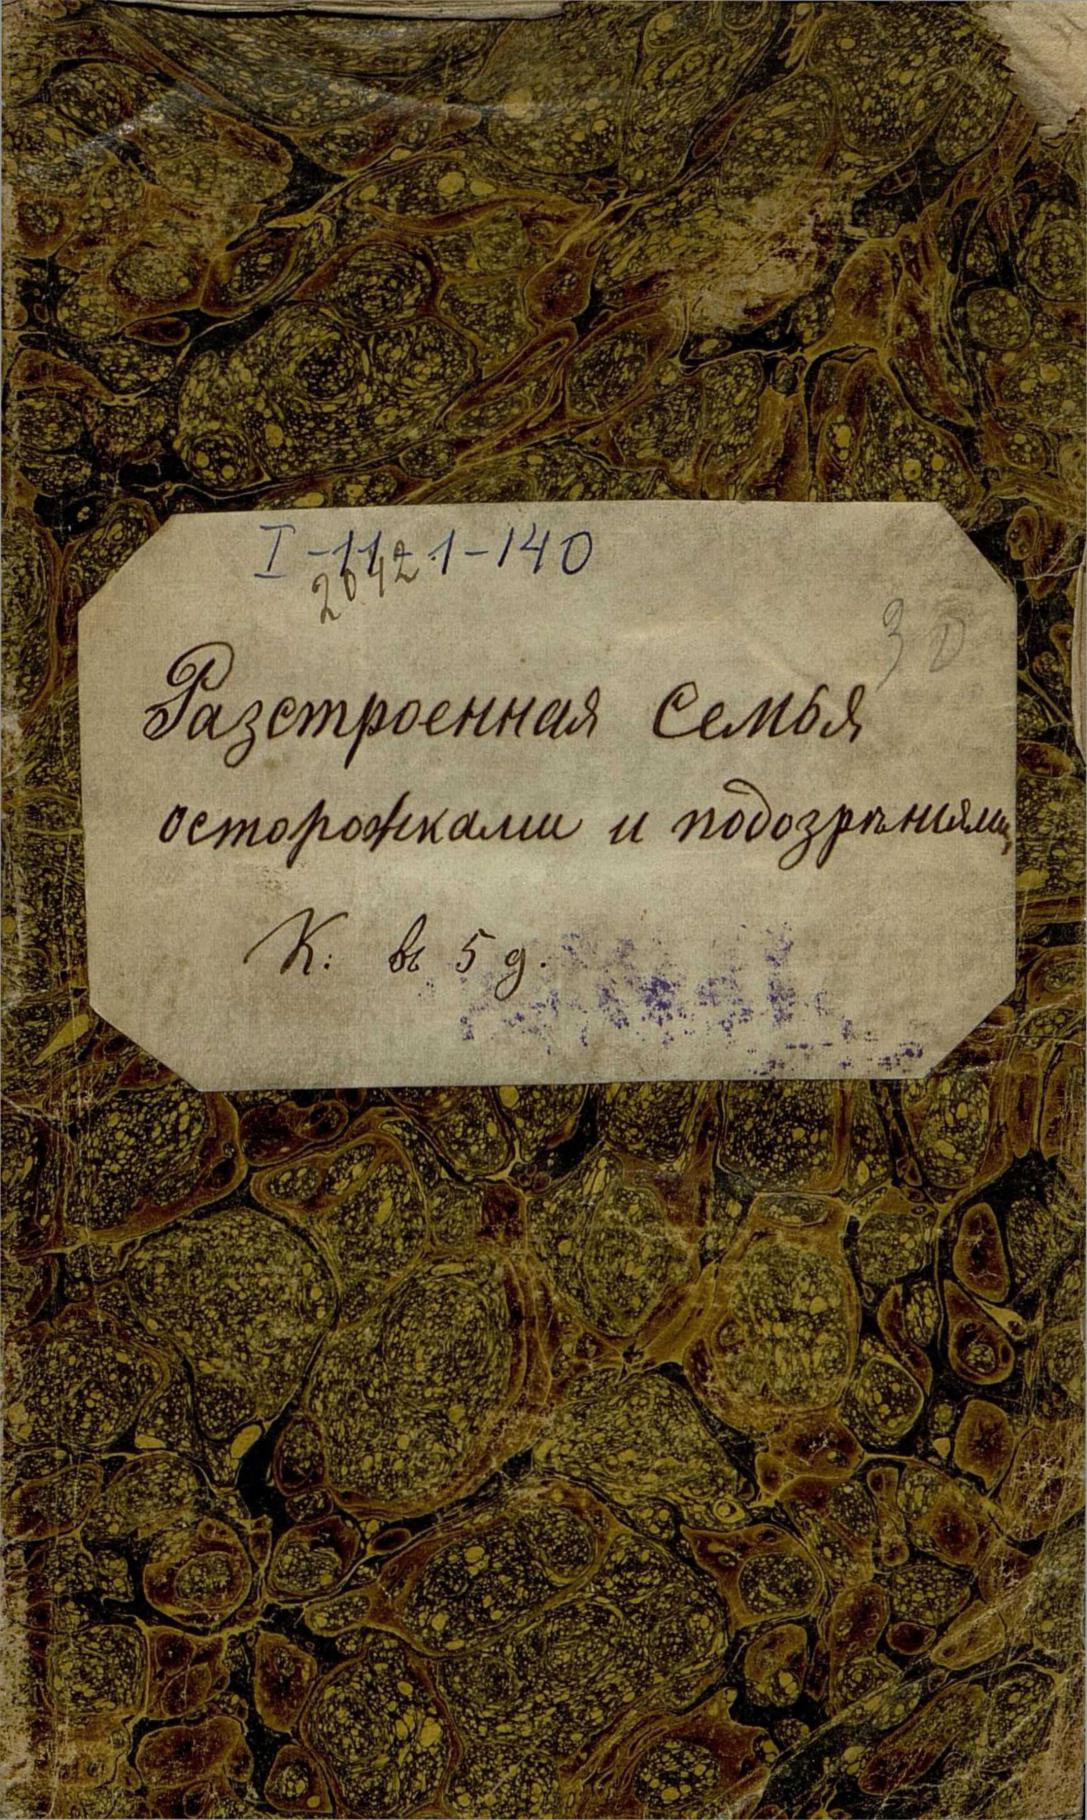 I-11-1-140
2642
30
Разстроенная Семья
осторожками и подозрѣніями
К: въ 5 д.